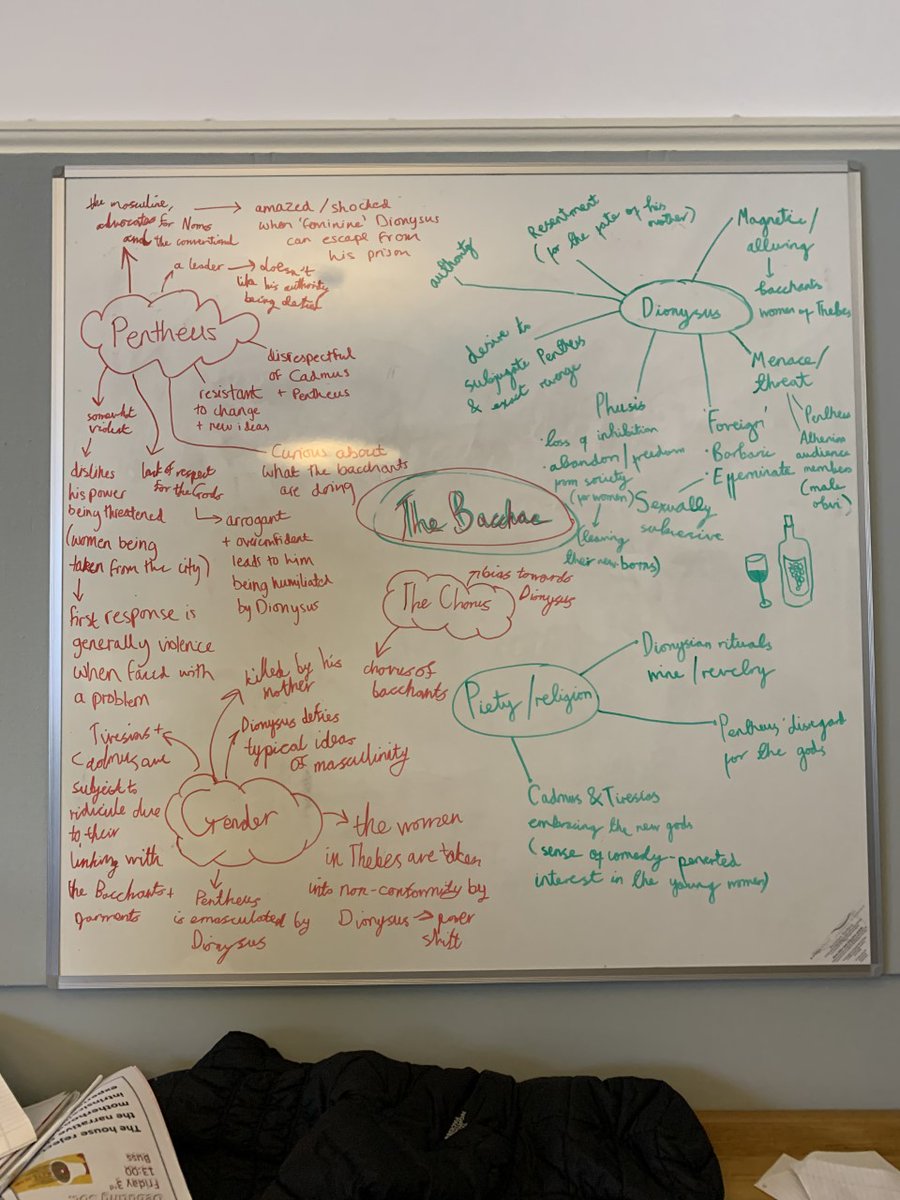 the masculine,
advocates for Nomos
and the conventional
amazed / shocked
when 'feminine' Dionysus
can escape from
his prison
a leader → doesn't
like his authority
being denied
Pentheus
disrespectful
of Cadmus
+ Pentheus
resistant
to change
+ new ideas
Curious about
what the bacchants
are doing
somewhat
violent
dislikes
his power
being threatened
(women being
taken from the city)
first response is
generally violence
when faced with
a problem
lack of respect
for the Gods
arrogant
+ overconfident
leads to him
being humiliated
by Dionysus
The Bacchae
The Chorus
bias towards
Dionysus
chorus of
bacchants
Dionysus
authority
Resentment
(for the fate of his
mother)
Magnetic/
alluring
bacchants
women of Thebes
desire to
subjugate Pentheus
& exact revenge
Phusis
· loss of inhibition
· abandon/freedom
from society
(for women)
(leaving
their newborns)
'Foreign'
· Barbaric
· Effeminate
Sexually
subversive
Menace/
threat
Pentheus
Athenian
audience
members
(male
obvi)
Gender
Tiresias +
Cadmus are
subject to
ridicule due
to their
linking with
the Bacchants +
garments
killed by his
mother
Dionysus defies
typical ideas
of masculinity
the women
in Thebes are taken
into non-conformity by
Dionysus → power
shift
Pentheus
is emasculated by
Dionysus
Piety/religion
Dionysian rituals
wine/revelry
Pentheus' disregard
for the gods
Cadmus & Tiresias
embracing the new gods
(sense of comedy-perverted
interest in the young women)
The house reject
the narrative
motherhood
Friday 3rd
13:00
Buss